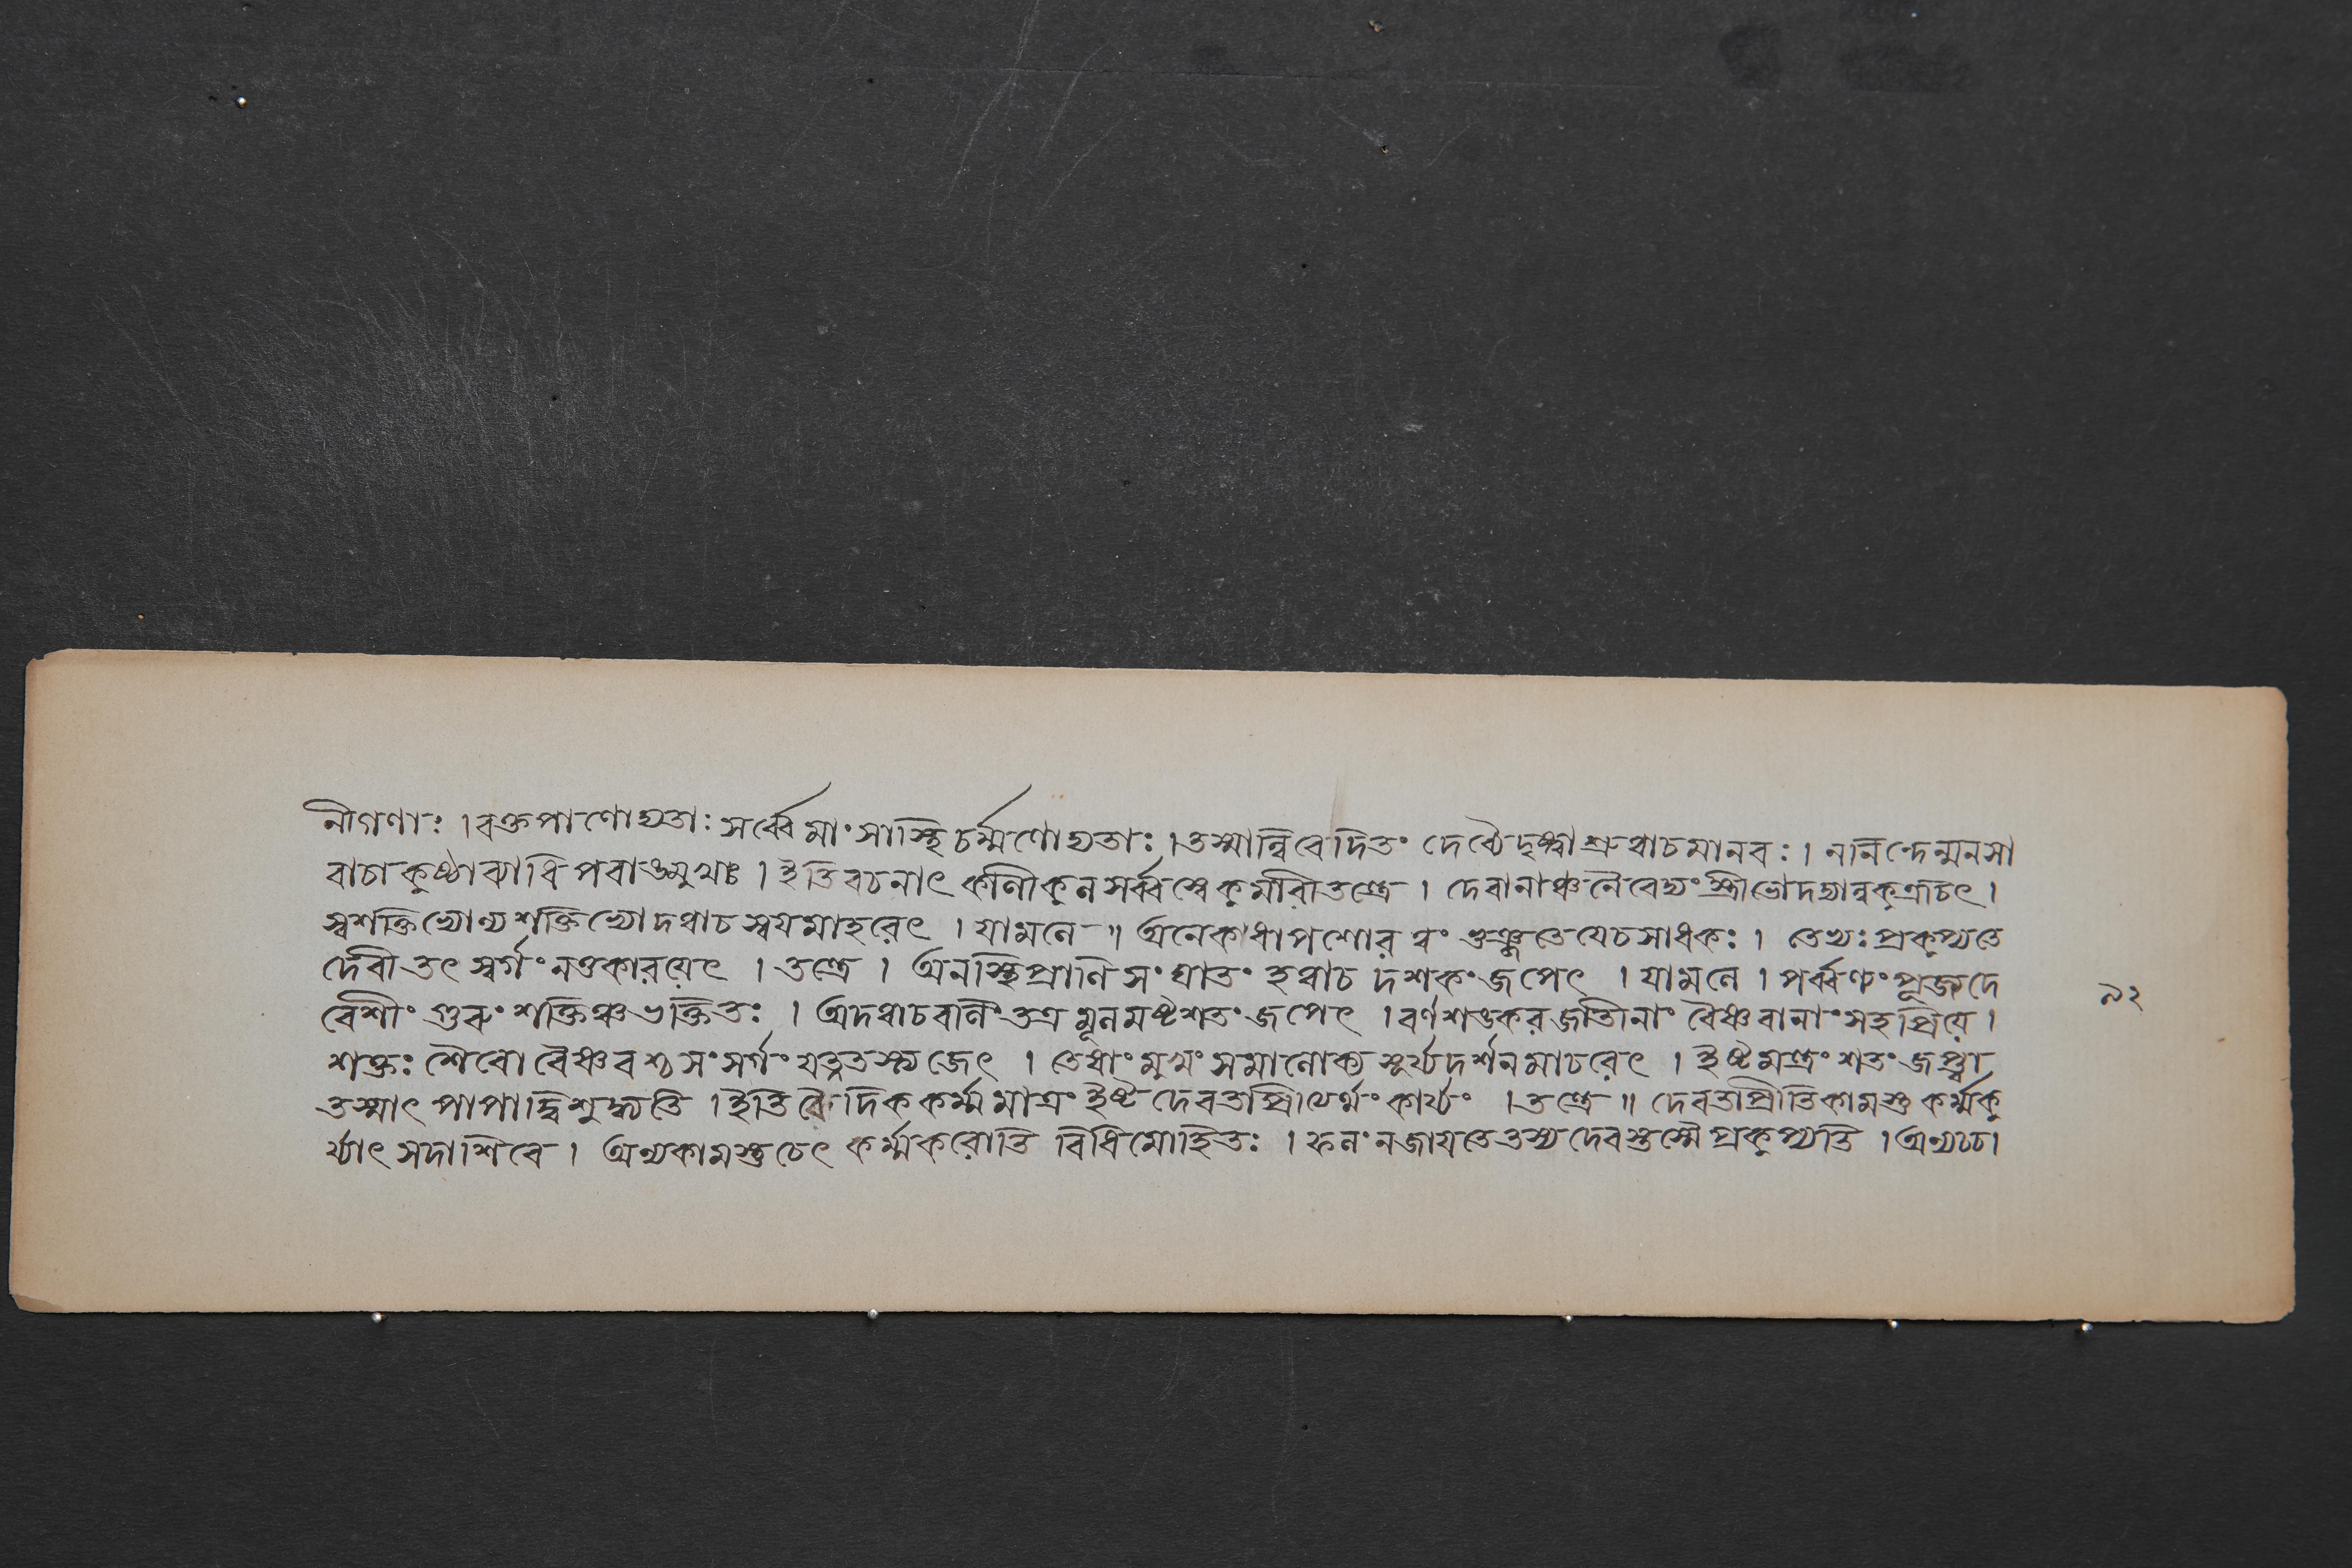 নীগণাঃ । রক্তপাণোদ্যতাঃ সর্ব্বে মাংসাস্থি চর্ম্মণোদ্যতাঃ । তস্মান্নিবেদিতং দেব্যৈ দৃষ্ট্বা শ্রুত্বা চ মানবঃ । ন নিন্দেন্মনসা
বাচা কুষ্ঠাব্যাধি পরাঙমুখাঃ । ইতি বচনাৎ সর্ব্বস্বে কুমারীতন্ত্রে । দেবানাঞ্চ নৈবেদ্যং স্ত্রীভ্যো দদ্যান্ন কুত্রচিৎ ।
স্বশক্তিভ্যোন্যশক্তিভ্যো দত্ত্বা চ স্বয়মাহরেৎ । যামলে ॥ অনেকধা পশোরন্নং ভুঞ্জতে যে চ সাধকঃ । তেভ্যঃ প্রকুপ্যতে
দেবী তৎ স্বর্গং নতকারয়েৎ । তন্ত্রে । অনস্থিপ্রাণি সংঘাতং হত্বা চ দশকং জপেৎ । যামলে । পর্ব্বণ্যং পূজদে
বেশীং গুরুং শক্তিঞ্চ ভক্তিতঃ । অদত্ত্বা চ বলিং তত্র মূলমষ্টশতং জপেৎ । বর্ণশঙকর জাতীনাং বৈষ্ণবানাং সহ প্রিয়ে ।
শক্তঃ শৈবো বৈষ্ণবশ্চ সংসর্গং যত্নতস্ত্যজেৎ । তেষাং মুখং সমালোক্য সূর্য্যদর্শনমাচরেৎ । ইষ্টমন্ত্রং শতং জপ্ত্বা
তস্মাৎ পাপাদ্বিশুদ্ধ্যতি । ইতি বৈদিক কর্ম্ম মাত্রং ইষ্ট দেবতাপ্রীত্যর্থং কার্য্যং । তন্ত্রে ॥ দেবতাপ্রীতিকামস্তু কর্ম্মকু
র্য্যাৎ সদাশিবে । অন্যকামস্তু চেৎ কর্ম্ম করোতি বিধিমোহিতঃ । ফলং ন জায়তে তস্য দেবস্তস্মৈ প্রকুপ্যতি । অন্যচ্চ ।
৯২